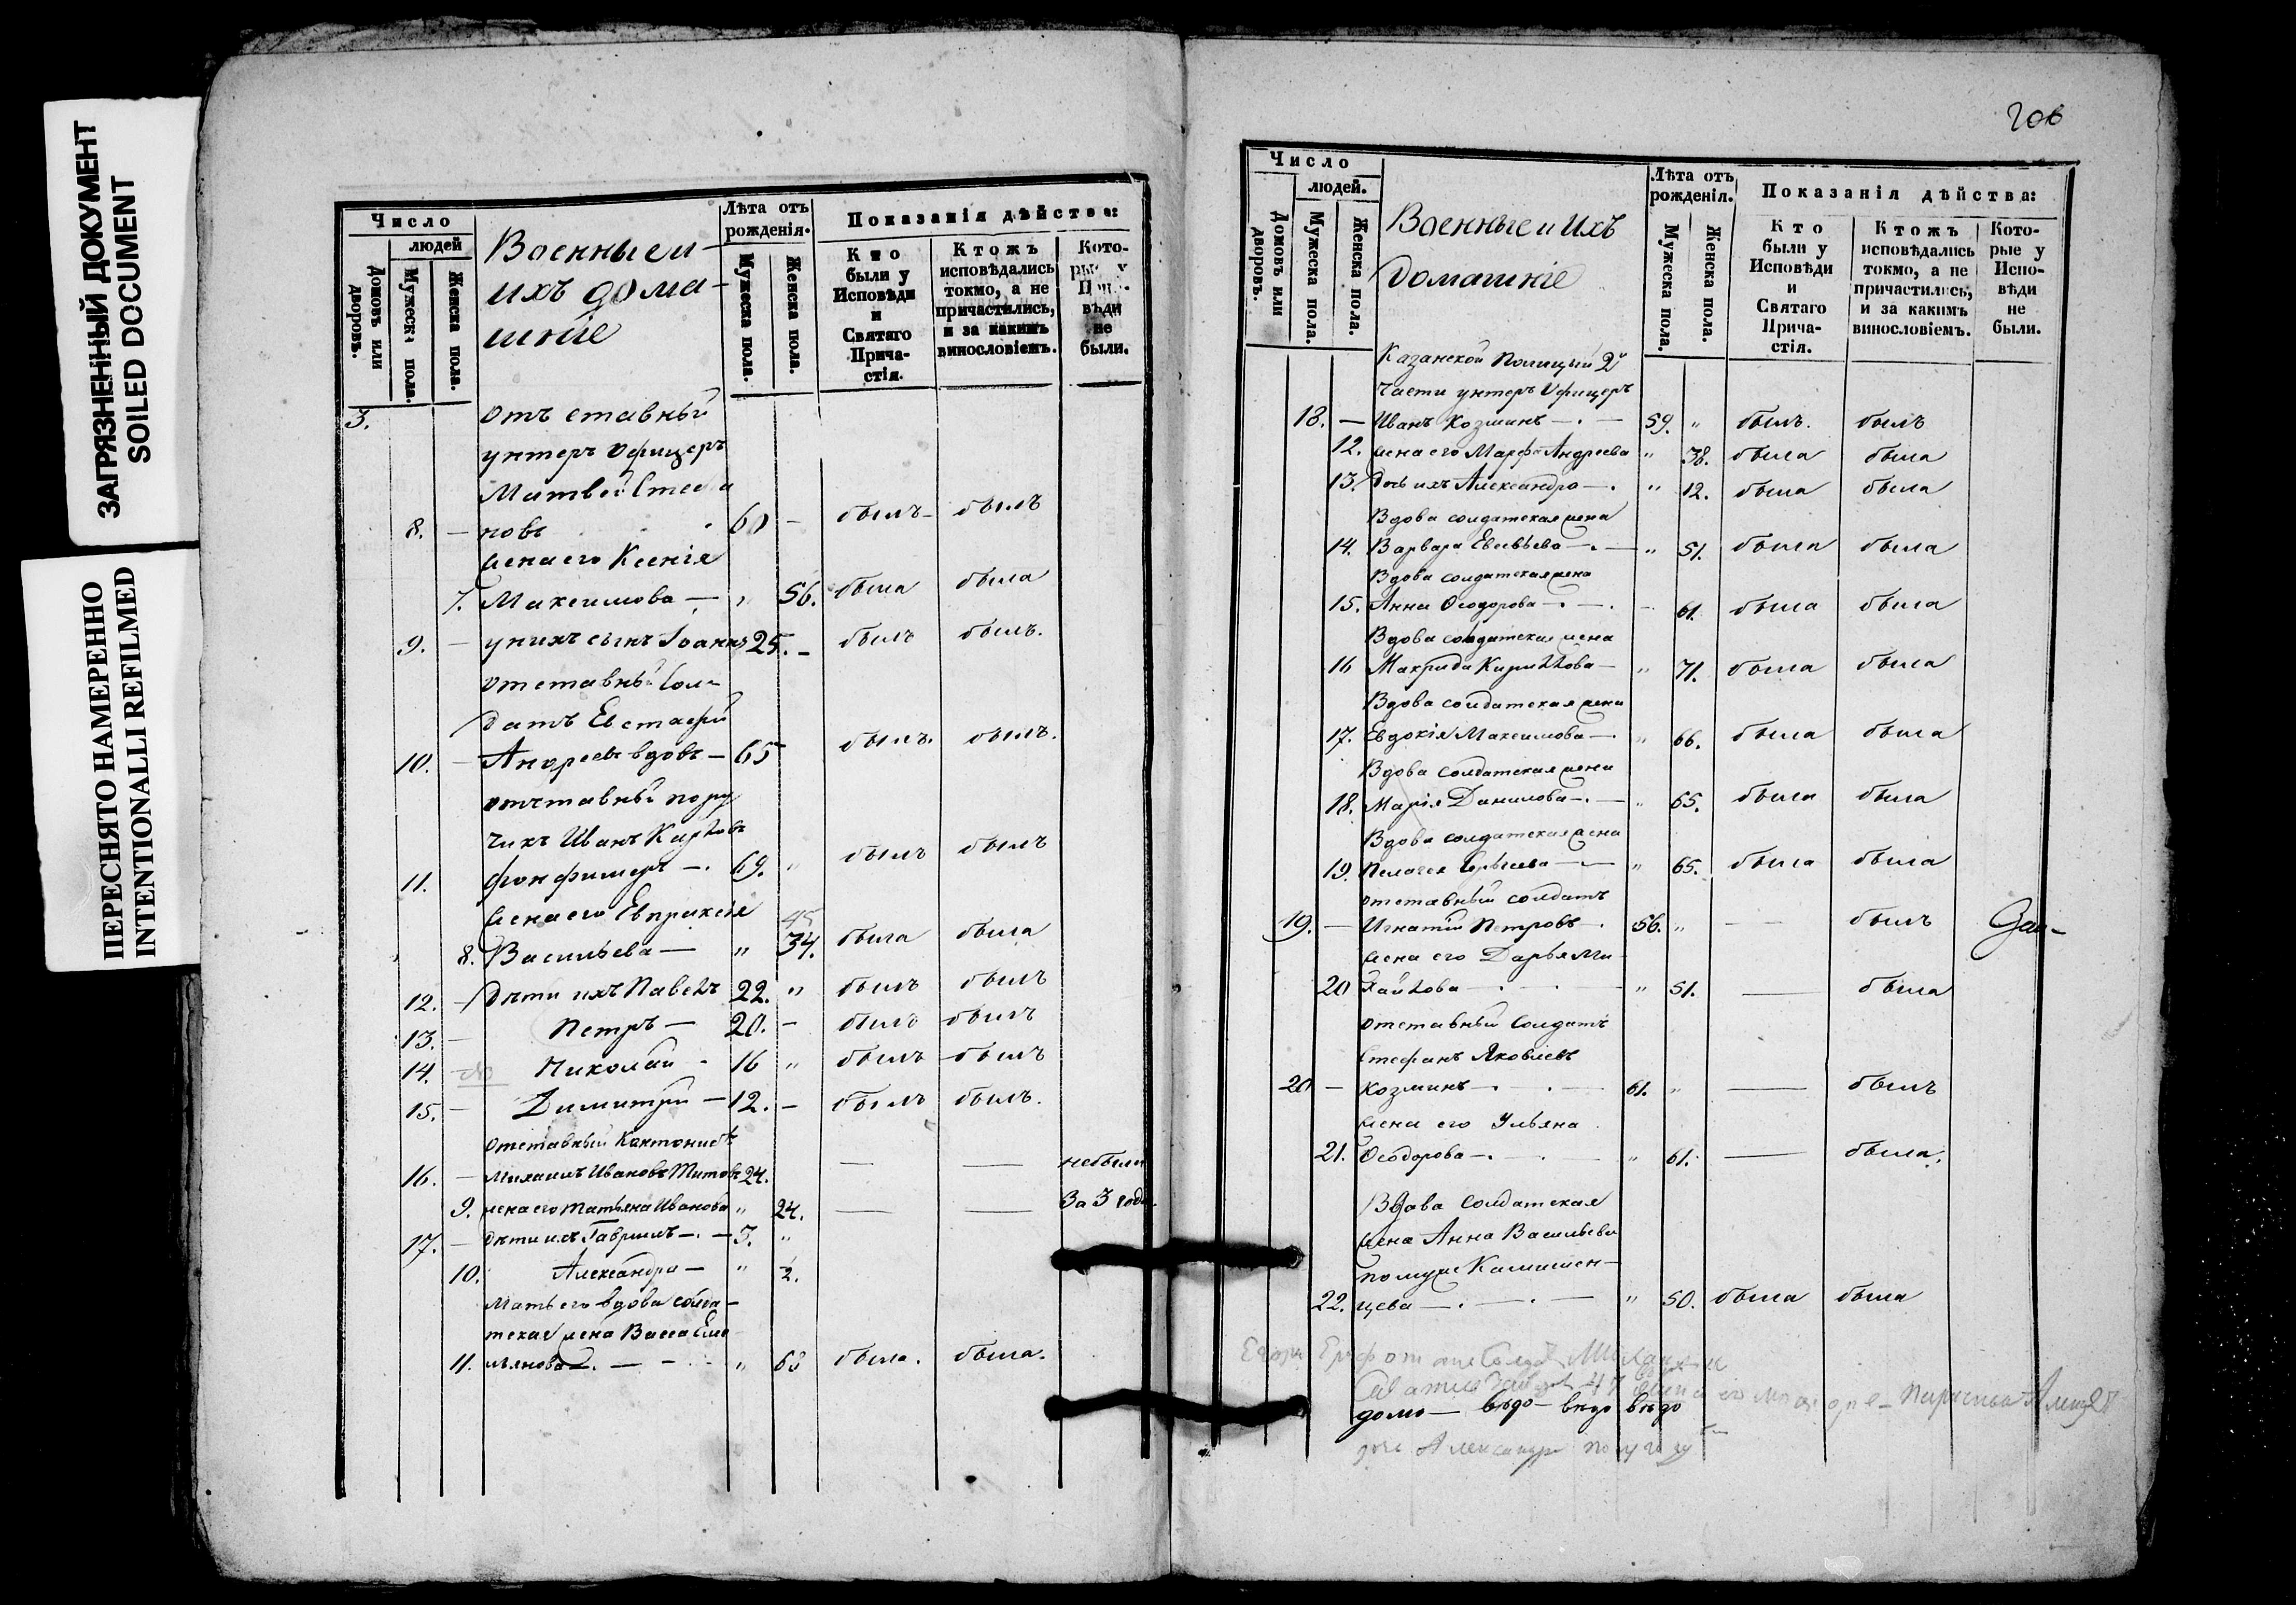 ЗАГРЯЗНЕННЫЙ ДОКУМЕНТ
SOILED DOCUMENT
ПЕРЕСНЯТО НАМЕРЕННО
INTENTIONALLI REFILMED
Число
людей
Домовъ или дворовъ.
Мужеска пола.
Женска пола.
Военные и
ихъ дома-
шніе
Лѣта отъ
рожденія.
Мужеска пола.
Женска пола.
Показанія дѣйства:
Кто
были у
Исповѣди
и
Святаго
Прича-
стія.
Ктожъ
исповѣдались
токмо, а не
причастились,
и за какимъ
винословіемъ.
Кото-
рые у
Испо-
вѣди
не
были.
3. отъ ставный
унтеръ офицеръ
Матвей Стефа
8. — новъ 60 — былъ — былъ
жена его Ксенія
7. Максимова — " 56. была была
9. — у нихъ сынъ Іоаннъ 25. — былъ былъ.
отставный Сол
датъ Евстафій
10. — Андреевъ вдовъ — 65 былъ. былъ.
отъставный пору
чикъ Иванъ Карловъ
11. фонъ фишеръ — . 69. " былъ былъ
жена его Евпраксія 45
8. Васильева — " 34. была была
12. — дѣти ихъ Павелъ 22. " былъ былъ
13. — Петръ — 20. — былъ былъ
14. — Николай - 16 " былъ былъ
15. — Димитрій — 12. — былъ былъ.
отставный Кантонистъ
16. — Михаилъ Ивановъ Титовъ 24. — — небыли
9. жена его Татьяна Иванова " 24. — — За 3 года.
17. — дѣти ихъ Гавриилъ — . — 3. "
10. Александра — " 2.
Мать его вдова солда—
тская жена Васса Еме
11. льянова — . — " 68 была. была.
206
Число
людей.
Домовъ или дворовъ.
Мужеска пола.
Женска пола.
Военные и Ихъ
Домашніе
Лѣта отъ
рожденія.
Мужеска пола.
Женска пола.
Показанія дѣйства:
Кто
были у
Исповѣди
и
Святаго
Прича-
стія.
Ктожъ
исповѣдались
токмо, а не
причастились,
и за какимъ
винословіемъ.
Кото-
рые у
Испо-
вѣди
не
были.
Казанской Полиціи 2й
части унтеръ Офицеръ
18. — Иванъ Козминъ — . — 59. " былъ. былъ
12. жена его Марфа Андреева " 38. была была
13. Дочь ихъ Александра — . " 12. была была
Вдова солдатская жена
14. Варвара Евсѣева — . — " 51. была была
Вдова солдатская жена
15. Анна Ѳеодорова — . — . — 61. была была
Вдова солдатская жена
16 Макрида Кириллова — " 71. была была
Вдова солдатская жена
17. Евдокія Максимова — . " 66. была была
Вдова солдатская жена
18. Марія Данилова — . — " 65. была была
Вдова солдатская жена
19. Пелагея — . — " 65. была была
отставный солдатъ
19. — Игнатій Петровъ — . 56. " — былъ
жена его Дарья Ми
20 хайлова — . — . — " 51. — была
отставный Солдатъ
Стефанъ Яковлевъ
20 — Козминъ — . — . — 61. " — былъ
жена его Ульяна
21. Ѳеодорова — . — . — " 61. — была.
Вдова Солдатская
жена Анна Васильева
22. цева — . — . — " 50. была была
домо — вѣдо — вѣдо вѣдо
Александра